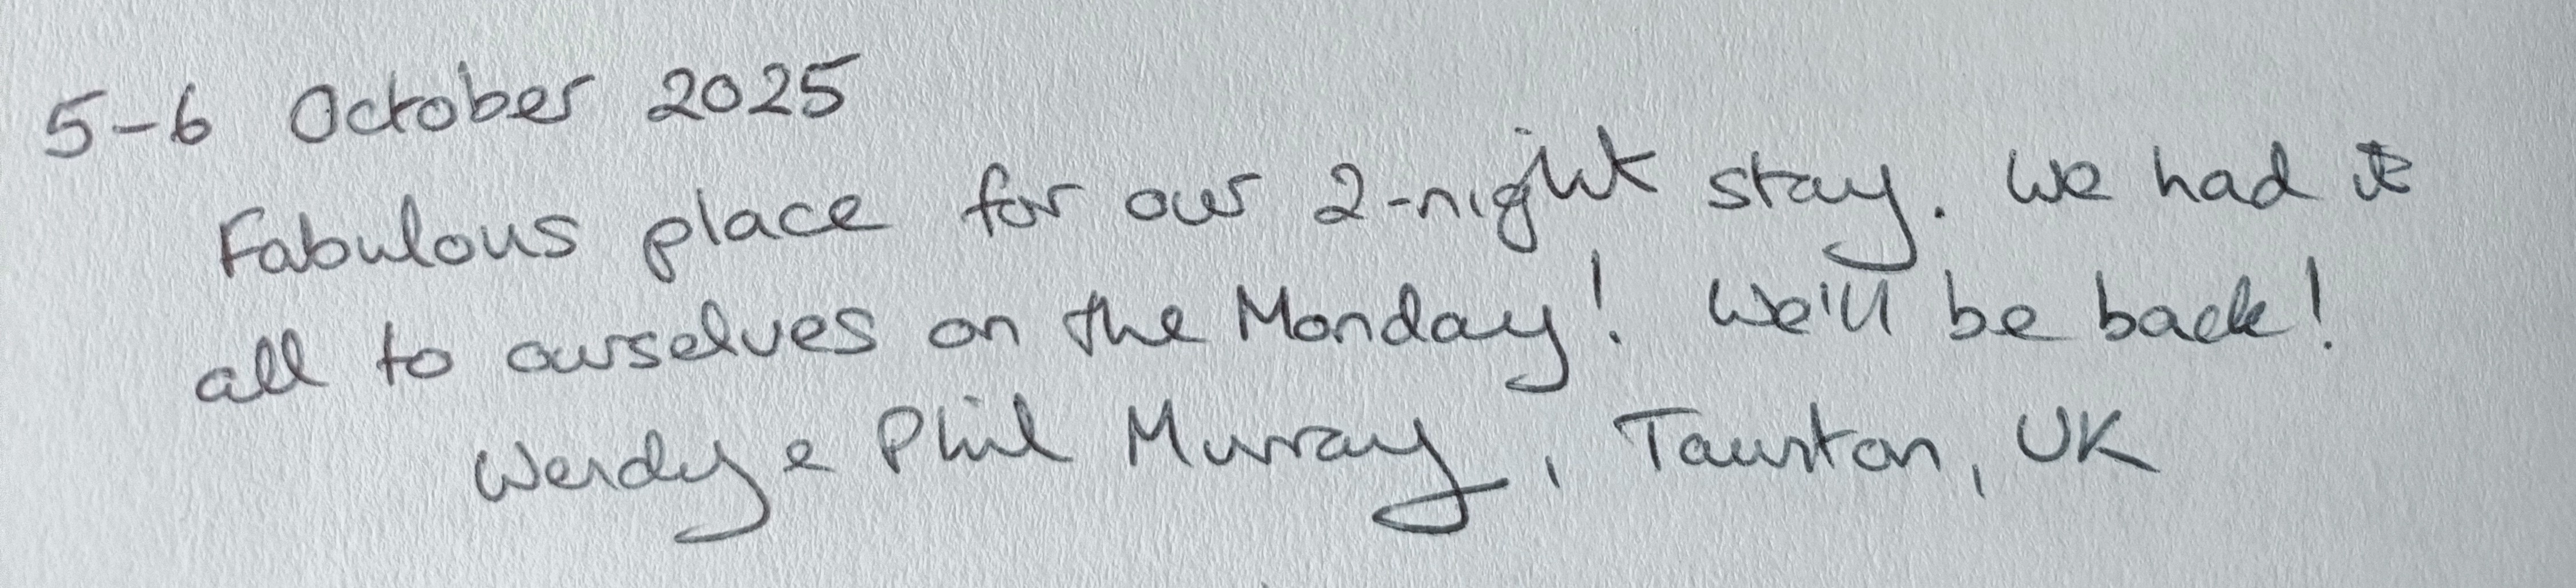 5-6 October 2025
Fabulous place for our 2-night stay. We had it
all to ourselves on the Monday! We'll be back!
Wendy & Phil Murray, Taunton, UK